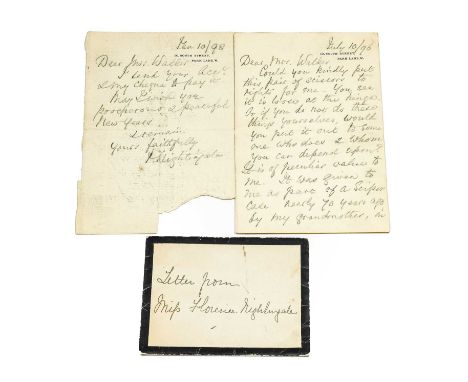 Jan 10/98
10, SOUTH STREET,
PARK LANE, W.
Dear Mr. Walker
I send your acct
& my cheque to pay it
May I wish you
prosperous & peaceful
New Years
I remain
Yours faithfully
F. Nightingale
July 10/96
10, SOUTH STREET,
PARK LANE, W.
Dear Mr. Walker
Could you kindly put
this pair of scissors to
rights for me. You see
it is loose at the hinge.
Or if you do not do these
things yourselves, would
you put it out to some
one who does & whom
you can depend upon?
It is of peculiar value to
me. It was given to
me as part of a Scissor
Case nearly 70 years ago
by my grandmother, in
Letter from
Miss Florence Nightingale